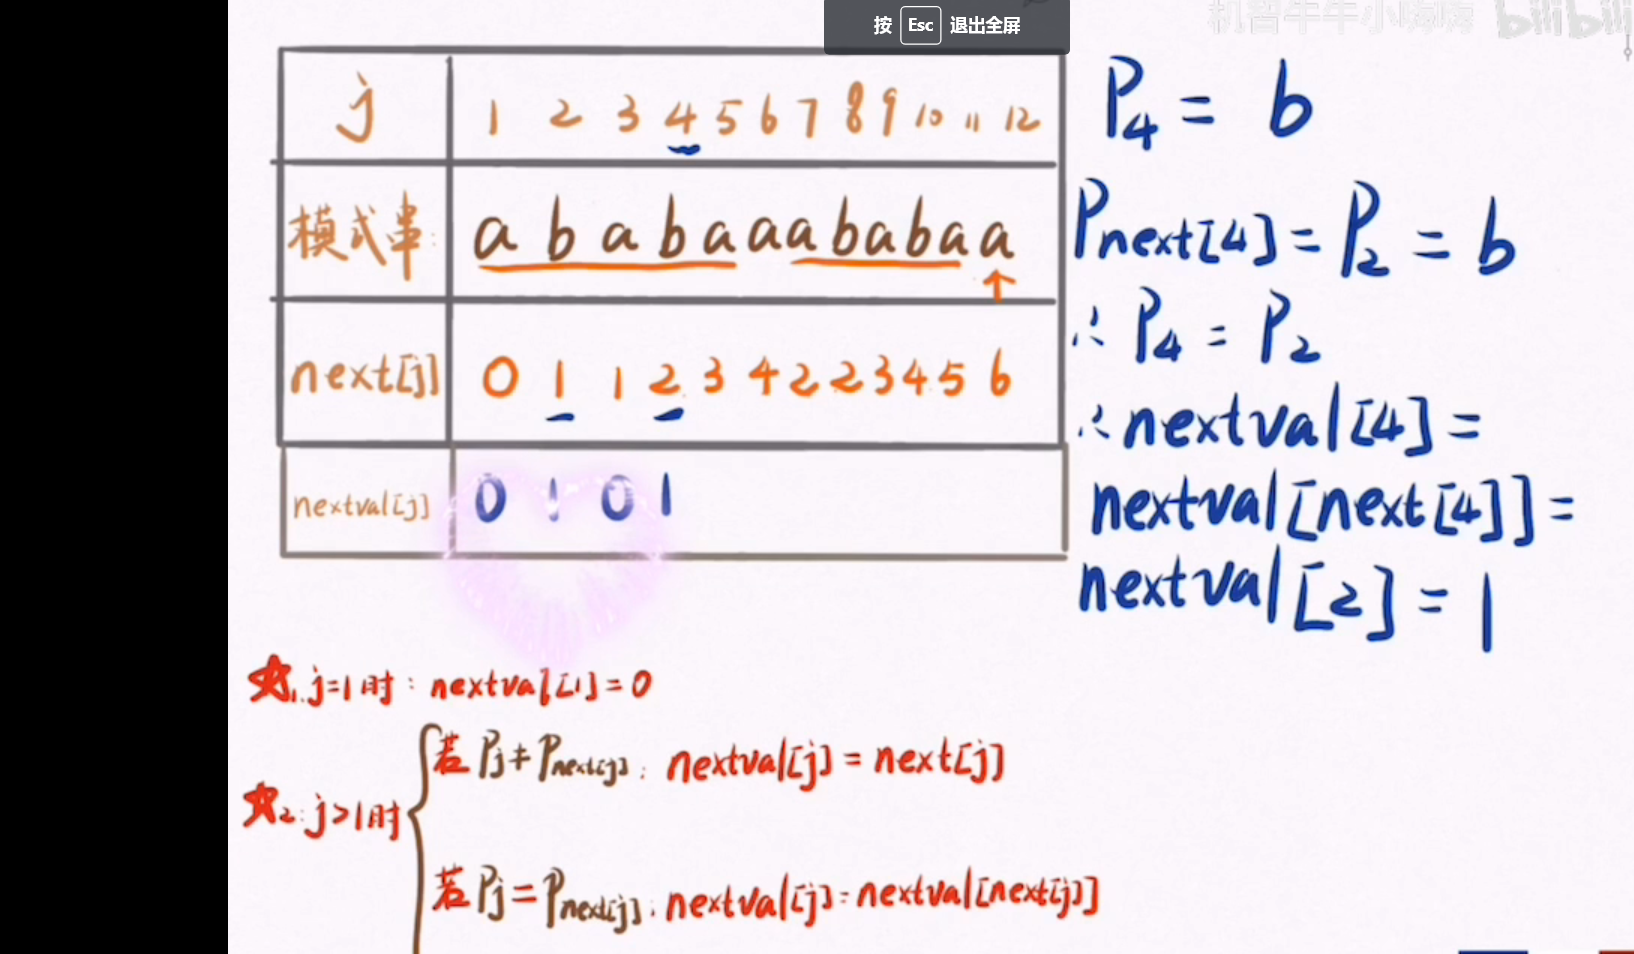 按 Esc 退出全屏
机智牛牛小嗨嗨 bilibili
j 1 2 3 4 5 6 7 8 9 10 11 12
模式串: a b a b a a a b a b a a
next[j] 0 1 1 2 3 4 2 2 3 4 5 6
nextval[j] 0 1 0 1
P4 = b
Pnext[4] = P2 = b
∴ P4 = P2
∴ nextval[4] =
nextval[next[4]] =
nextval[2] = 1
★1. j=1时: nextval[1]=0
★2: j>1时
若 Pj≠Pnext[j]: nextval[j] = next[j]
若 Pj=Pnext[j]: nextval[j]=nextval[next[j]]